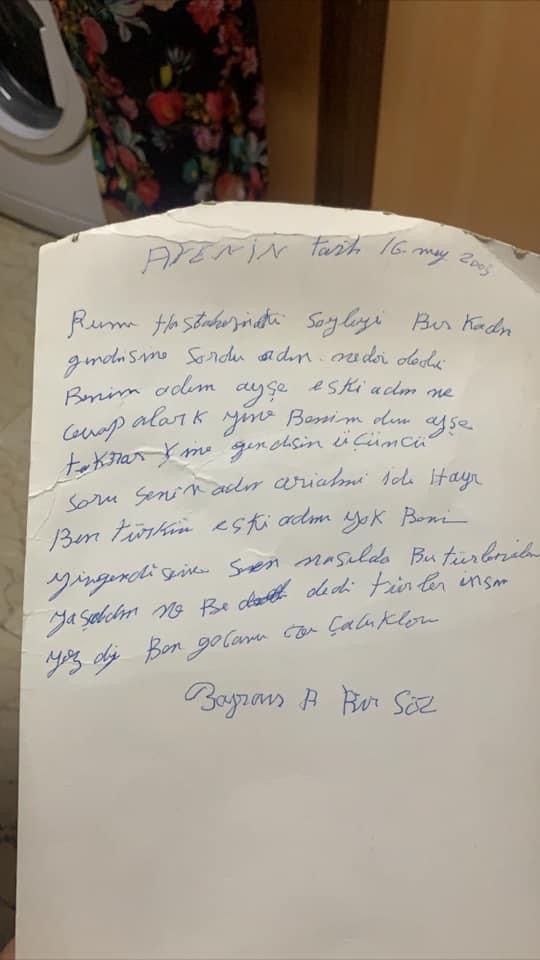 AYENİN tarih 16 may 2003
Rum Hastahesindki Soyleyi Bir Kadn
gendisine Sordu adın nedir dedi
Benim adım ayşe eski adın ne
cevap alark yine Benim dım ayşe
tekrar Yine gendisin üçüncü
Soru Senin adın idi Hayr
Ben türkün eski adım yok Beni
Sen nasılda Bu türlerilen
yaşddın ne Be dedi türler insn
Ben Çaluklon
A Bir SÖZ